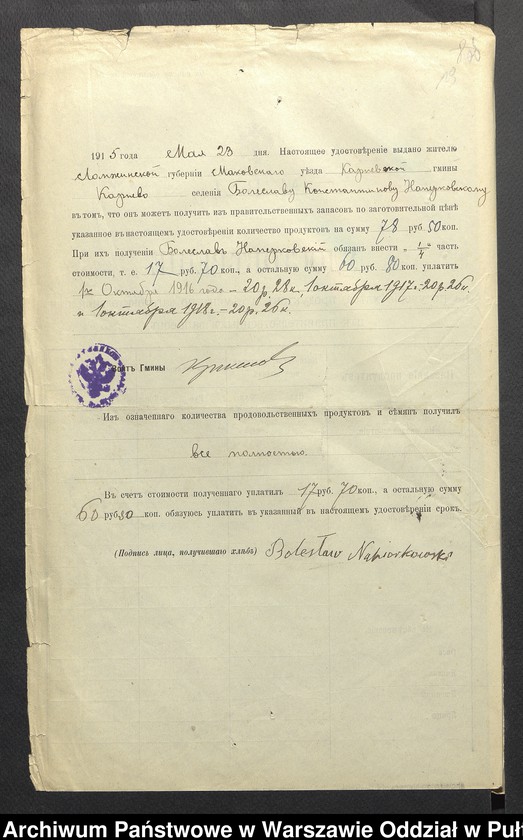 1915 года Мая 23 дня. Настоящее удостовѣреніе выдано жителю
Ломжинской губерніи Маковскаго уѣзда Карневской гмины
Карнево селенія Болеславу Константинову Наперковскому
въ томъ, что онъ можетъ получить изъ правительственныхъ запасовъ по заготовительной цѣнѣ
указанное въ настоящемъ удостовѣреніи количество продуктовъ на сумму 78 руб. 50 коп.
При ихъ полученіи Болеслав Наперковскій обязанъ внести „ 1/4 “ часть
стоимости, т. е. 17 руб. 70 коп., а остальную сумму 60 руб. 80 коп. уплатить
1го Октября 1916 года – 20 р. 28 к., 1 октября 1917 г. 20 р. 26 к.
и 1 октября 1918 г. – 20 р. 26 к.
Войтъ Гмины
Изъ означеннаго количества продовольственныхъ продуктовъ и сѣмянъ получилъ
все полностью.
Въ счетъ стоимости полученнаго уплатилъ 17 руб. 70 коп., а остальную сумму
60 руб. 80 коп. обязуюсь уплатить въ указанный въ настоящемъ удостовѣреніи срокъ.
(Подпись лица, получившаго хлѣбъ) Bolesław Napiorkowski
Archiwum Państwowe w Warszawie Oddział w Puł